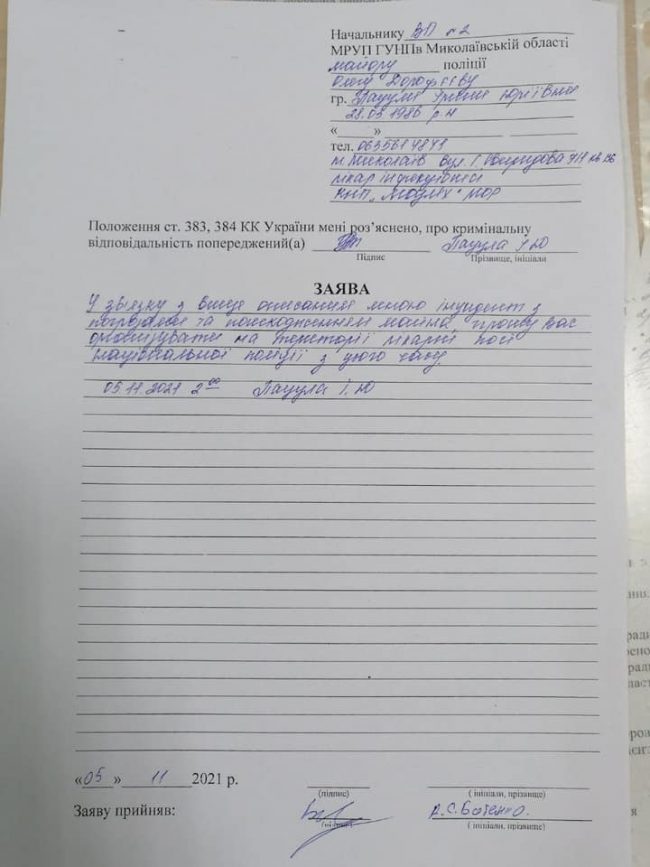 Начальнику ВП №2
МРУП ГУНПв Миколаївській області
майору поліції
Олегу
гр. Пацула Юріївна
28.05.1986 р.н
« »
тел.
м. Миколаїв вул.
лікар інфекціоніст
КНП МОР
Положення ст. 383, 384 КК України мені роз’яснено, про кримінальну
відповідальність попереджений(а) Пацула І.Ю
Підпис Прізвище, ініціали
ЗАЯВА
У звязку з вище описаним мною інцидент з
погрозами та пошкодженням майна, прошу вас
організувати на території лікарні пост
національної поліції з цього часу.
05.11.2021 2⁰⁰ Пацула І.Ю
«05» 11 2021 р.
(підпис) ( ініціали, прізвище)
Заяву прийняв: А.С.
(підпис) ( ініціали, прізвище)